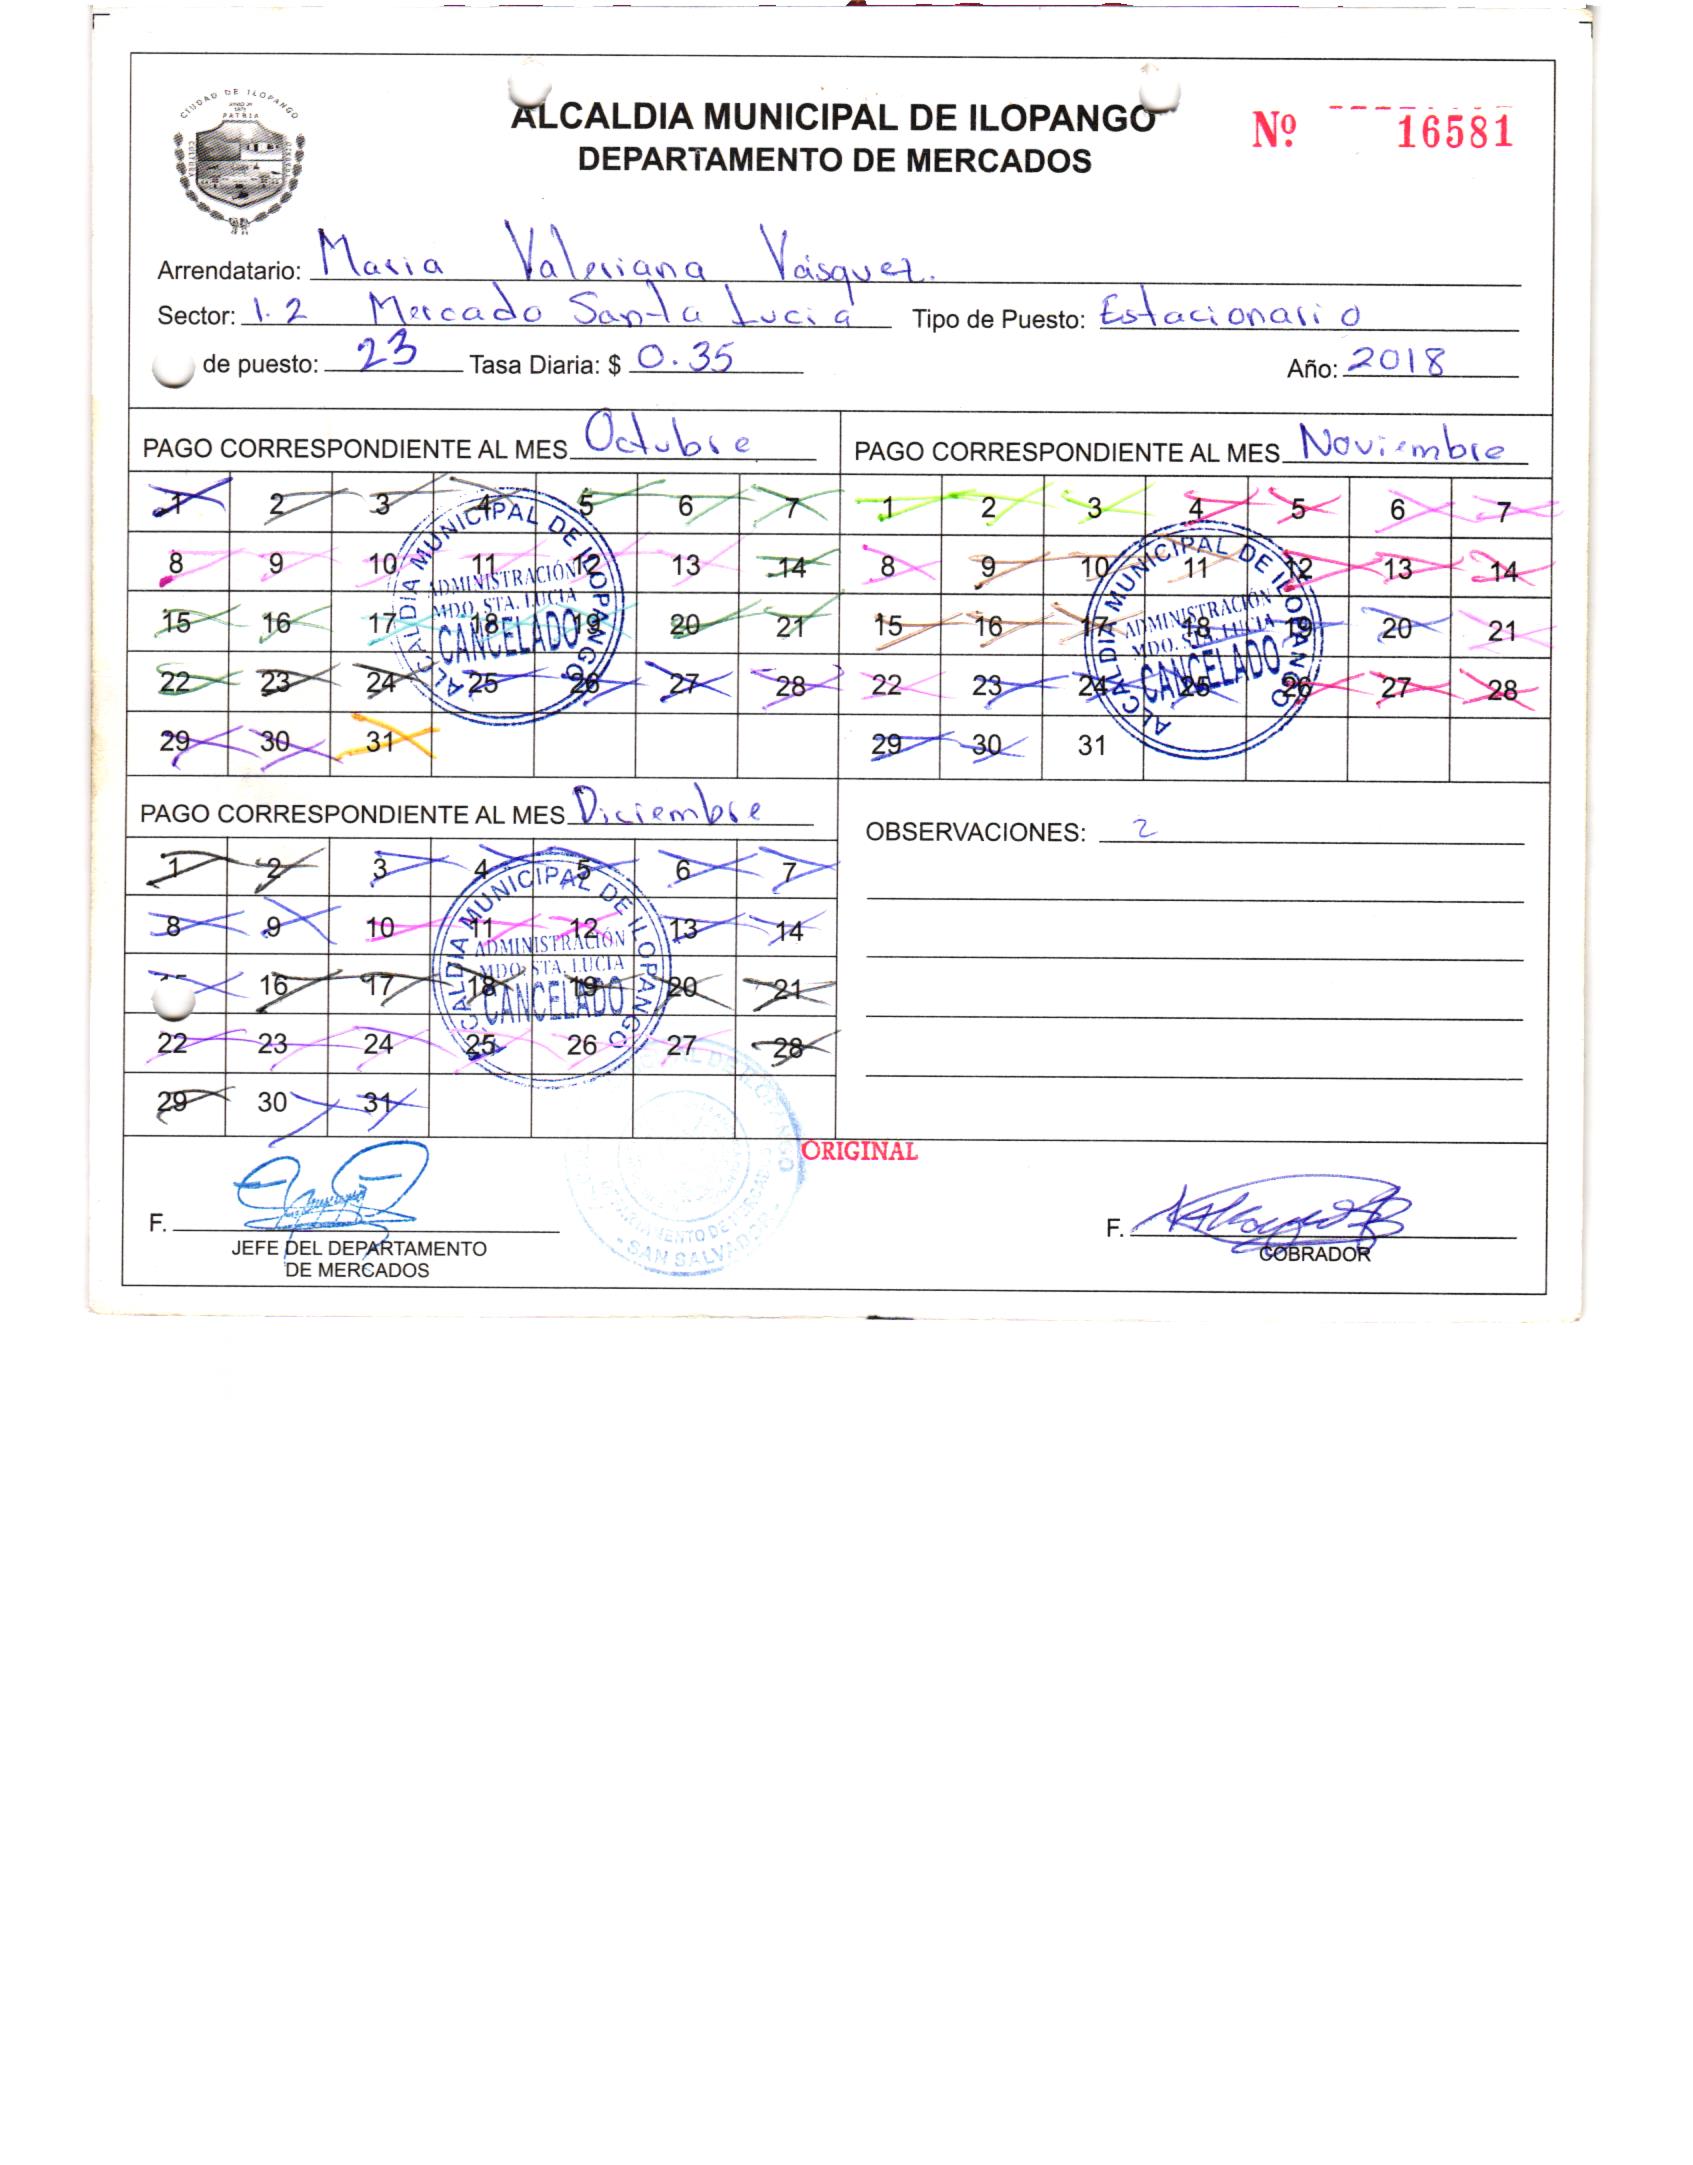 CIUDAD DE ILOPANGO
PATRIA
ALCALDIA MUNICIPAL DE ILOPANGO
DEPARTAMENTO DE MERCADOS
Nº 16581
Arrendatario: Maria Valeriana Vásquez.
Sector: 1.2 Mercado Santa Lucia Tipo de Puesto: Estacionario
de puesto: 23 Tasa Diaria: $ 0.35 Año: 2018
PAGO CORRESPONDIENTE AL MES Octubre
1 2 3 4 5 6 7
8 9 10 11 12 13 14
15 16 17 18 19 20 21
22 23 24 25 26 27 28
29 30 31
ALCALDIA MUNICIPAL DE ILOPANGO
ADMINISTRACIÓN
MDO. STA. LUCIA
CANCELADO
PAGO CORRESPONDIENTE AL MES Noviembre
1 2 3 4 5 6 7
8 9 10 11 12 13 14
15 16 17 18 19 20 21
22 23 24 25 26 27 28
29 30 31
ALCALDIA MUNICIPAL DE ILOPANGO
ADMINISTRACIÓN
MDO. STA. LUCIA
CANCELADO
PAGO CORRESPONDIENTE AL MES Diciembre
1 2 3 4 5 6 7
8 9 10 11 12 13 14
16 17 18 19 20 21
22 23 24 25 26 27 28
29 30 31
ALCALDIA MUNICIPAL DE ILOPANGO
ADMINISTRACIÓN
MDO. STA. LUCIA
CANCELADO
OBSERVACIONES: 2
ORIGINAL
SAN SALVADOR
F.
JEFE DEL DEPARTAMENTO
DE MERCADOS
F.
COBRADOR